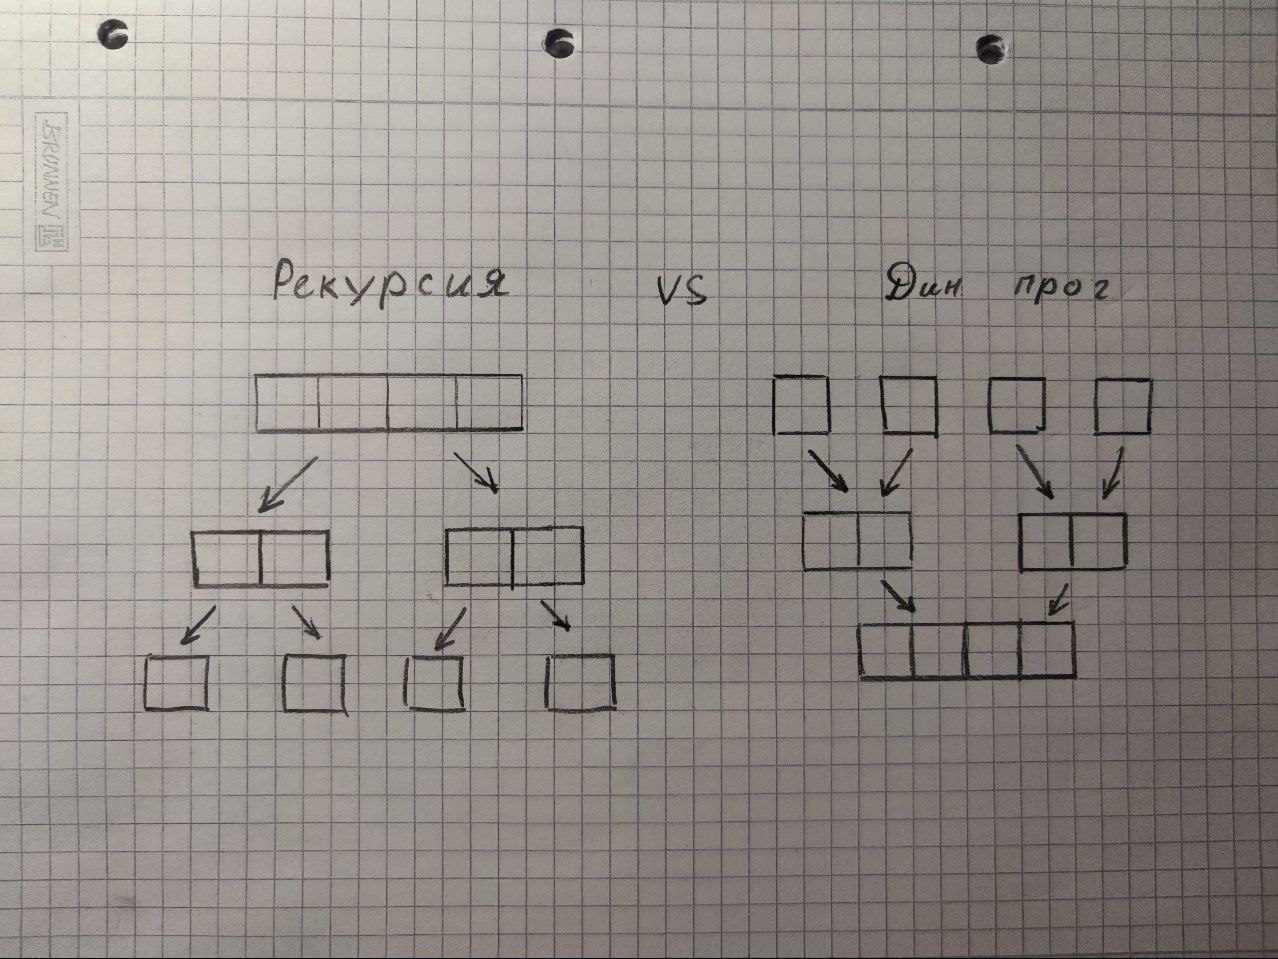 BRUNNEN
Рекурсия vs Дин прог